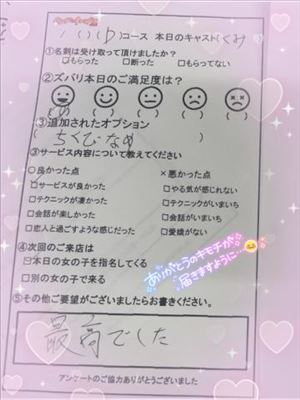 コース 本日のキャスト(くみ
①名刺は受け取って頂けましたか？
□もらった □断った □もらってない
②ズバリ本日のご満足度は？
( ) ( ) ( ) ( ) ( )
③追加されたオプション
( ちくびなめ )
③サービス内容について教えてください
○良かった点 ×悪かった点
□サービスが良かった □やる気が感じれない
□テクニックが凄かった □テクニックがいまいち
□会話が楽しかった □会話がいまいち
□恋人と過ごすような感じだった □愛嬌がない
④次回のご来店は
□本日の女の子を指名してくる
□別の女の子で来る
ありがとうのキモチが
届きますように…
⑤その他ご要望がございましたらお書きください。
最高でした
アンケートのご協力ありがとうございました